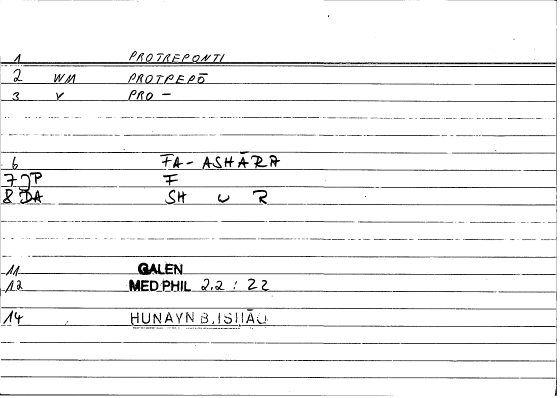 1 PROTREPONTI
2 WM PROTPEPŌ
3 V PRO -
6 FA - ASHĀRA
7 JP F
8 DA SH W R
11 GALEN
12 MED PHIL 2,2 : 22
14 HUNAYN B, ISHĀQ